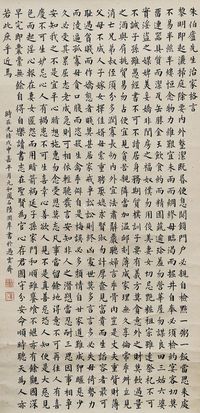 朱伯廬先生治家格言
黎明即起灑掃庭除要內外整潔既昏便息關鎖門戶必親自檢點一粥一飯當思來處
不易半絲半縷恆念物力維艱宜未雨而綢繆毋臨渴而掘井自奉必須儉約宴客切勿留
連器具質而潔瓦缶勝金玉飲食約而精園蔬愈珍饈勿營華屋勿謀良田三姑六婆
實淫盜之媒婢美妾嬌非閨房之福奴僕勿用俊美妻妾切忌豔妝祖宗雖遠祭祀不可
不誠子孫雖愚經書不可不讀居身務期質樸教子要有義方勿貪意外之財勿飲過量
之酒與肩挑貿易勿占便宜見貧苦親鄰須多溫恤刻薄成家理無久享倫常乖舛立見
消亡兄弟叔姪須分多潤寡長幼內外宜法肅辭嚴聽婦言乖骨肉豈是丈夫重貲財薄
父母不成人子嫁女擇佳壻毋索重聘娶媳求淑女毋計厚奩見富貴而生諂容者最可
恥遇貧窮而作驕態者賤莫甚居家戒爭訟訟則終凶處世戒多言言多必失毋恃勢力
而凌逼孤寡毋貪口腹而恣殺生禽乖僻自是悔誤必多頹惰自甘家道難成狎暱惡少
久必受其累屈志老成急則可相依輕聽發言安知非人之譖愬當忍耐三思因事相爭
安知非我之不是須平心暗想施惠勿念受恩莫忘凡事當留餘地得意不宜再往人有喜
慶不可生妒忌心人有禍患不可生喜幸心善欲人見不是真善惡恐人知便是大惡見
色而起淫心報在妻女匿怨而用暗箭禍延子孫家門和順雖饔飧不繼亦有餘歡國課
早完即囊橐無餘自得至樂讀書志在聖賢為官心存君國守分安命順時聽天為人若
此庶乎近焉
時在光緒戊申嘉平月元和鳳石陸潤庠書於雲齋